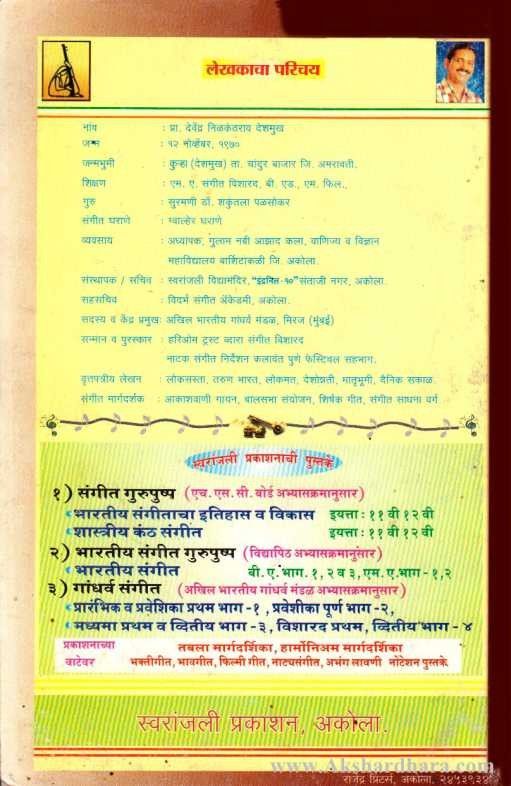 लेखकाचा परिचय
नांव : प्रा. देवेंद्र निळकंठराव देशमुख
जन्म : १२ नोव्हेंबर, १९७०
जन्मभुमी : कुऱ्हा (देशमुख) ता. चांदुर बाजार जि. अमरावती.
शिक्षण : एम. ए. संगीत विशारद, बी. एड., एम. फिल.,
गुरु : सुरमणी डॉ. शकुंतला पळसोकर
संगीत घराणे : ग्वाल्हेर घराणे
व्यवसाय : अध्यापक, गुलाम नबी आझाद कला, वाणिज्य व विज्ञान
महाविद्यालय बार्शिटाकळी जि. अकोला.
संस्थापक / सचिव : स्वरांजली विद्यामंदिर, "इंद्रनिल-१०" संताजी नगर, अकोला.
सहसचिव : विदर्भ संगीत ॲकेडमी, अकोला.
सदस्य व केंद्र प्रमुख: अखिल भारतीय गांधर्व मंडळ, मिरज (मुंबई)
सन्मान व पुरस्कार : हरिओम ट्रस्ट व्दारा संगीत विशारद
नाटक संगीत निर्देशन कलावंत पुणे फेस्टिवल सहभाग.
वृत्तपत्रीय लेखन : लोकसस्ता, तरुण भारत, लोकमत, देशोन्नती, मातृभूमी, दैनिक सकाळ.
संगीत मार्गदर्शक : आकाशवाणी गायन, बालसभा संयोजन, शिर्षक गीत, संगीत साधना वर्ग
स्वरांजली प्रकाशनाची पुस्तके
१) संगीत गुरुपुष्प (एच. एस. सी. बोर्ड अभ्यासक्रमानुसार)
भारतीय संगीताचा इतिहास व विकास इयत्ता : ११ वी १२ वी
शास्त्रीय कंठ संगीत इयत्ता : ११ वी १२ वी
२) भारतीय संगीत गुरुपुष्प (विद्यापिठ अभ्यासक्रमानुसार)
भारतीय संगीत बी. ए. भाग. १, २ व ३, एम. ए. भाग - १,२
३) गांधर्व संगीत (अखिल भारतीय गांधर्व मंडळ अभ्यासक्रमानुसार)
प्रारंभिक व प्रवेशिका प्रथम भाग -१ , प्रवेशीका पूर्ण भाग -२,
मध्यमा प्रथम व व्दितीय भाग - ३, विशारद प्रथम, व्दितीय भाग - ४
प्रकाशनाच्या वाटेवर
तबला मार्गदर्शिका, हार्मोनिअम मार्गदर्शिका
भक्तीगीत, भावगीत, फिल्मी गीत, नाट्यसंगीत, अभंग लावणी नोटेशन पुस्तके
स्वरांजली प्रकाशन, अकोला.
www.Akshardhara.com
राजेंद्र प्रिंटर्स, अकोला, २४५३९३४